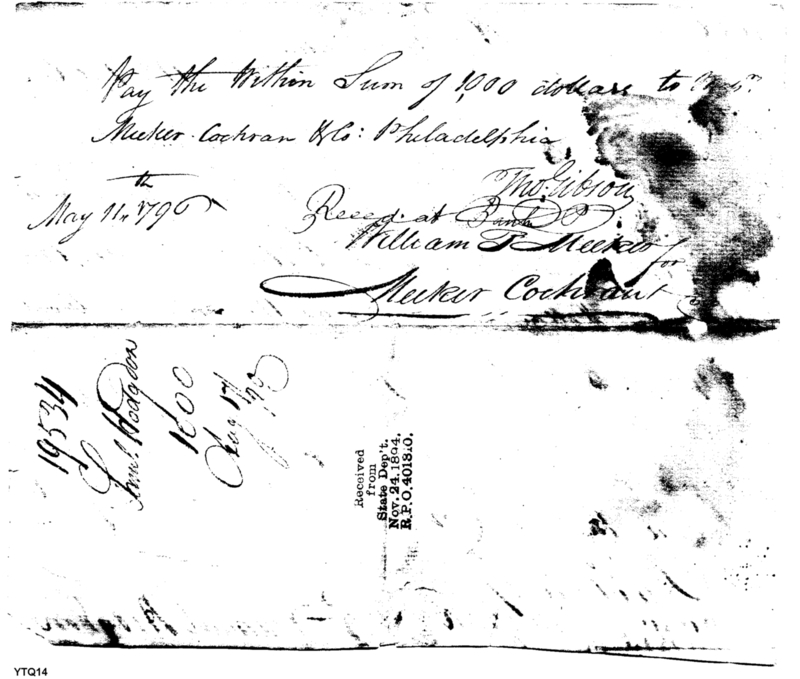 Pay the Within Sum of 1000 dollars to
Meeker Cochran & Co: Philadelphia
Tho. Gibson
May 11th 1796
Receed. at Bank
William P Meeker
for
Meeker Cochran &
19534
Saml. Hodgdon
1000
Aug 17/96
Received
from
State Dep't.
Nov. 24. 1894.
R.P.O. 401310.
YTQ14